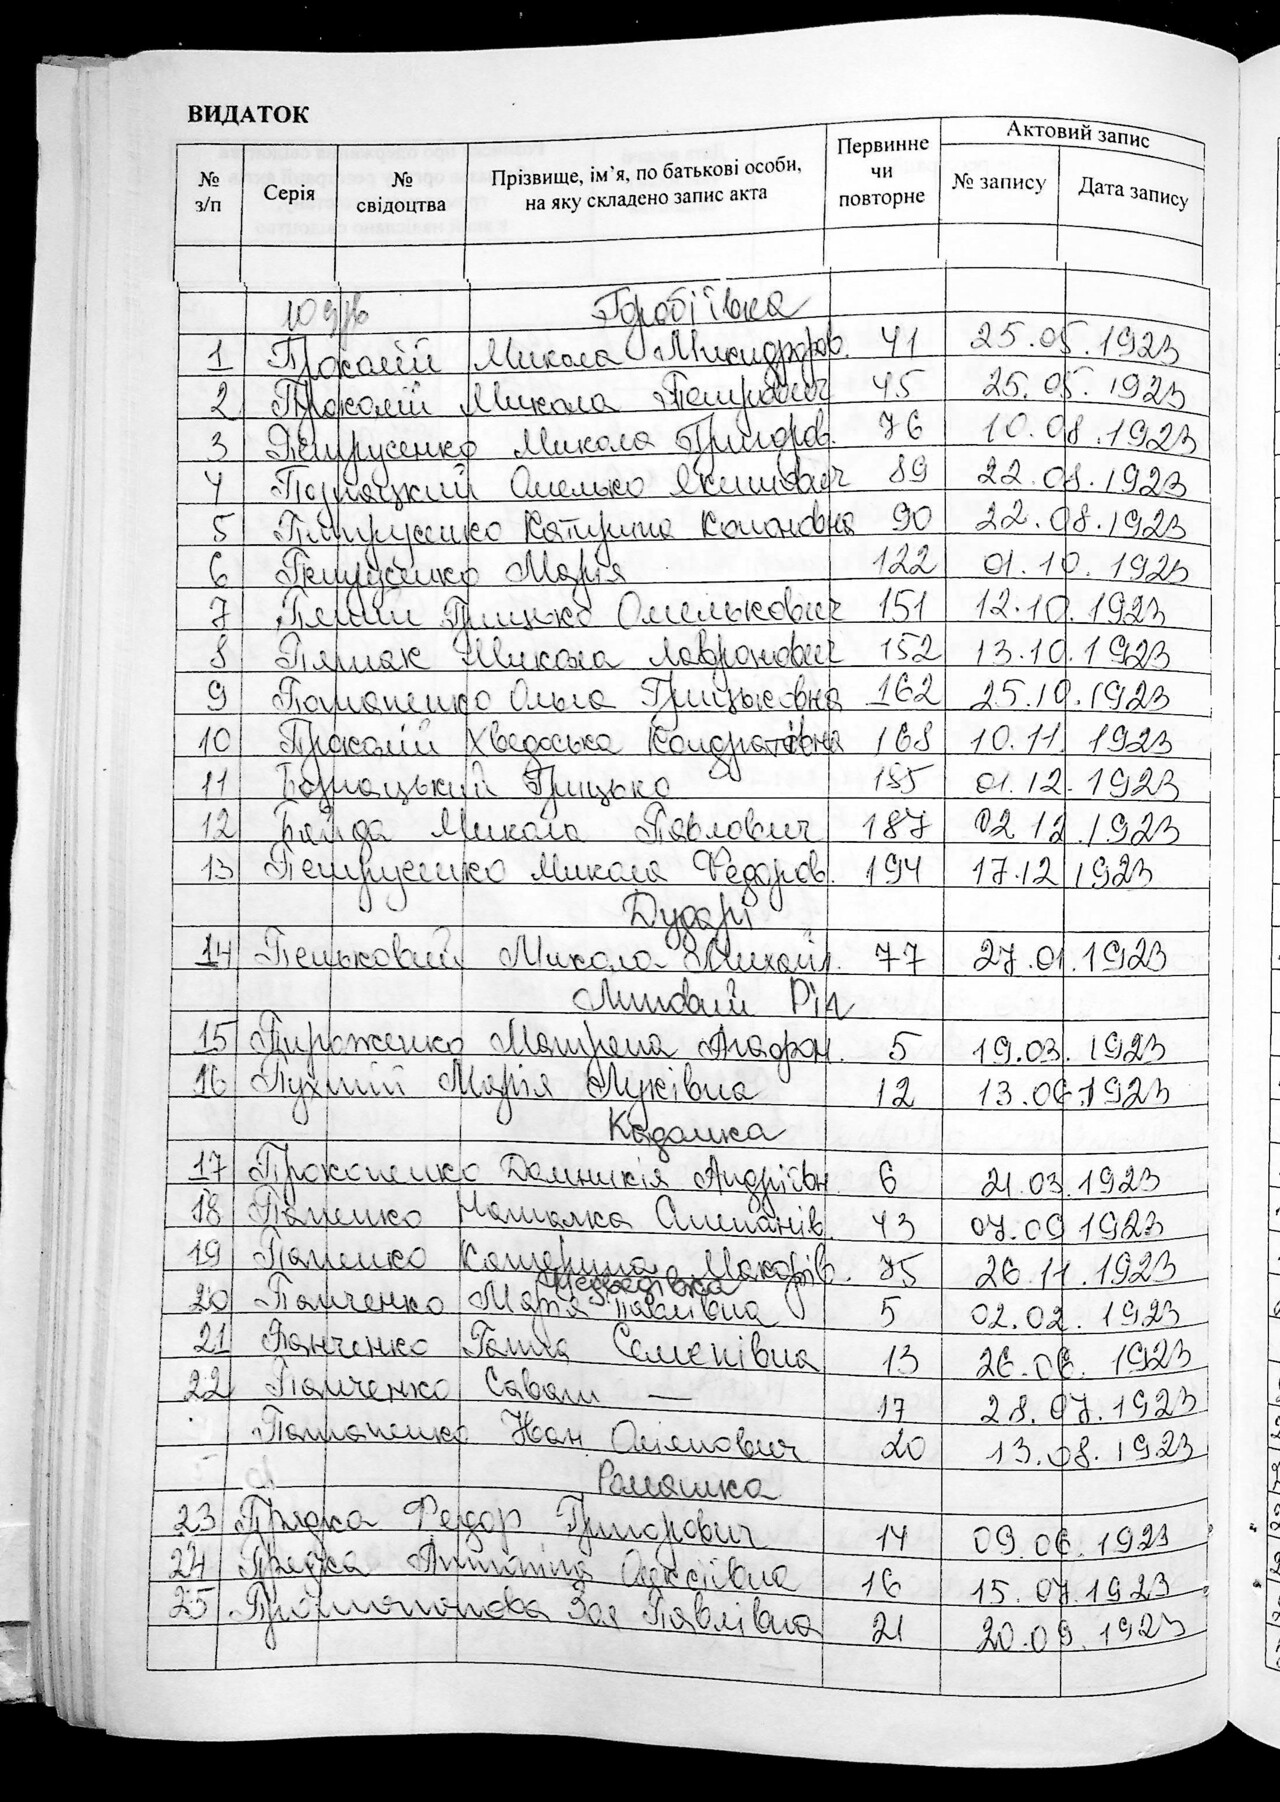 ВИДАТОК
№ з/п Серія № свідоцтва Прізвище, ім’я, по батькові особи, на яку складено запис акта Первинне чи повторне Актовий запис № запису Дата запису
Горобіївка
1 Прокопій Микола Никифоров. 41 25.05.1923
2 Прокопій Микола Петрович 45 25.05.1923
3 Петрусенко Микола Григоров. 76 10.08.1923
4 Омелько Якимович 89 22.08.1923
5 Петрусенко Катерина Кононовна 90 22.08.1923
6 Петрусенко Марія 122 01.10.1923
7 Грицько Омелькович 151 12.10.1923
8 Микола 152 13.10.1923
9 Потапенко Ольга Грицьковна 162 25.10.1923
10 Прокопій Хведоська Кондратівна 168 10.11.1923
11 Грицько 185 01.12.1923
12 Байда Микола Павлович 187 02.12.1923
13 Петрусенко Микола Федоров. 194 17.12.1923
Дударі
14 Пеньковий Микола Михайл. 77 27.01.1923
Липовий Ріг
15 Пироженко Мотрона Агафон. 5 19.03.1923
16 Пухтій Марія Луківна 12 13.06.1923
Кадомка
17 Прокопенко Домникія Андріївн. 6 21.03.1923
18 Папенко Наталка Степанів. 43 07.09.1923
19 Папенко Катерина Макарів. 75 26.11.1923
Медведівка
20 Панченко Марія Павлівна 5 02.02.1923
21 Панченко Ганна Семенівна 13 26.06.1923
22 Панченко Сават — 17 28.07.1923
Потапенко Іван Оліянович 20 13.08.1923
Ромашка
23 Прядка Федор Григорович 14 09.06.1923
24 Прядка Антоніна Олексіївна 16 15.07.1923
25 Протопопова Зоя Павлівна 21 20.09.1923